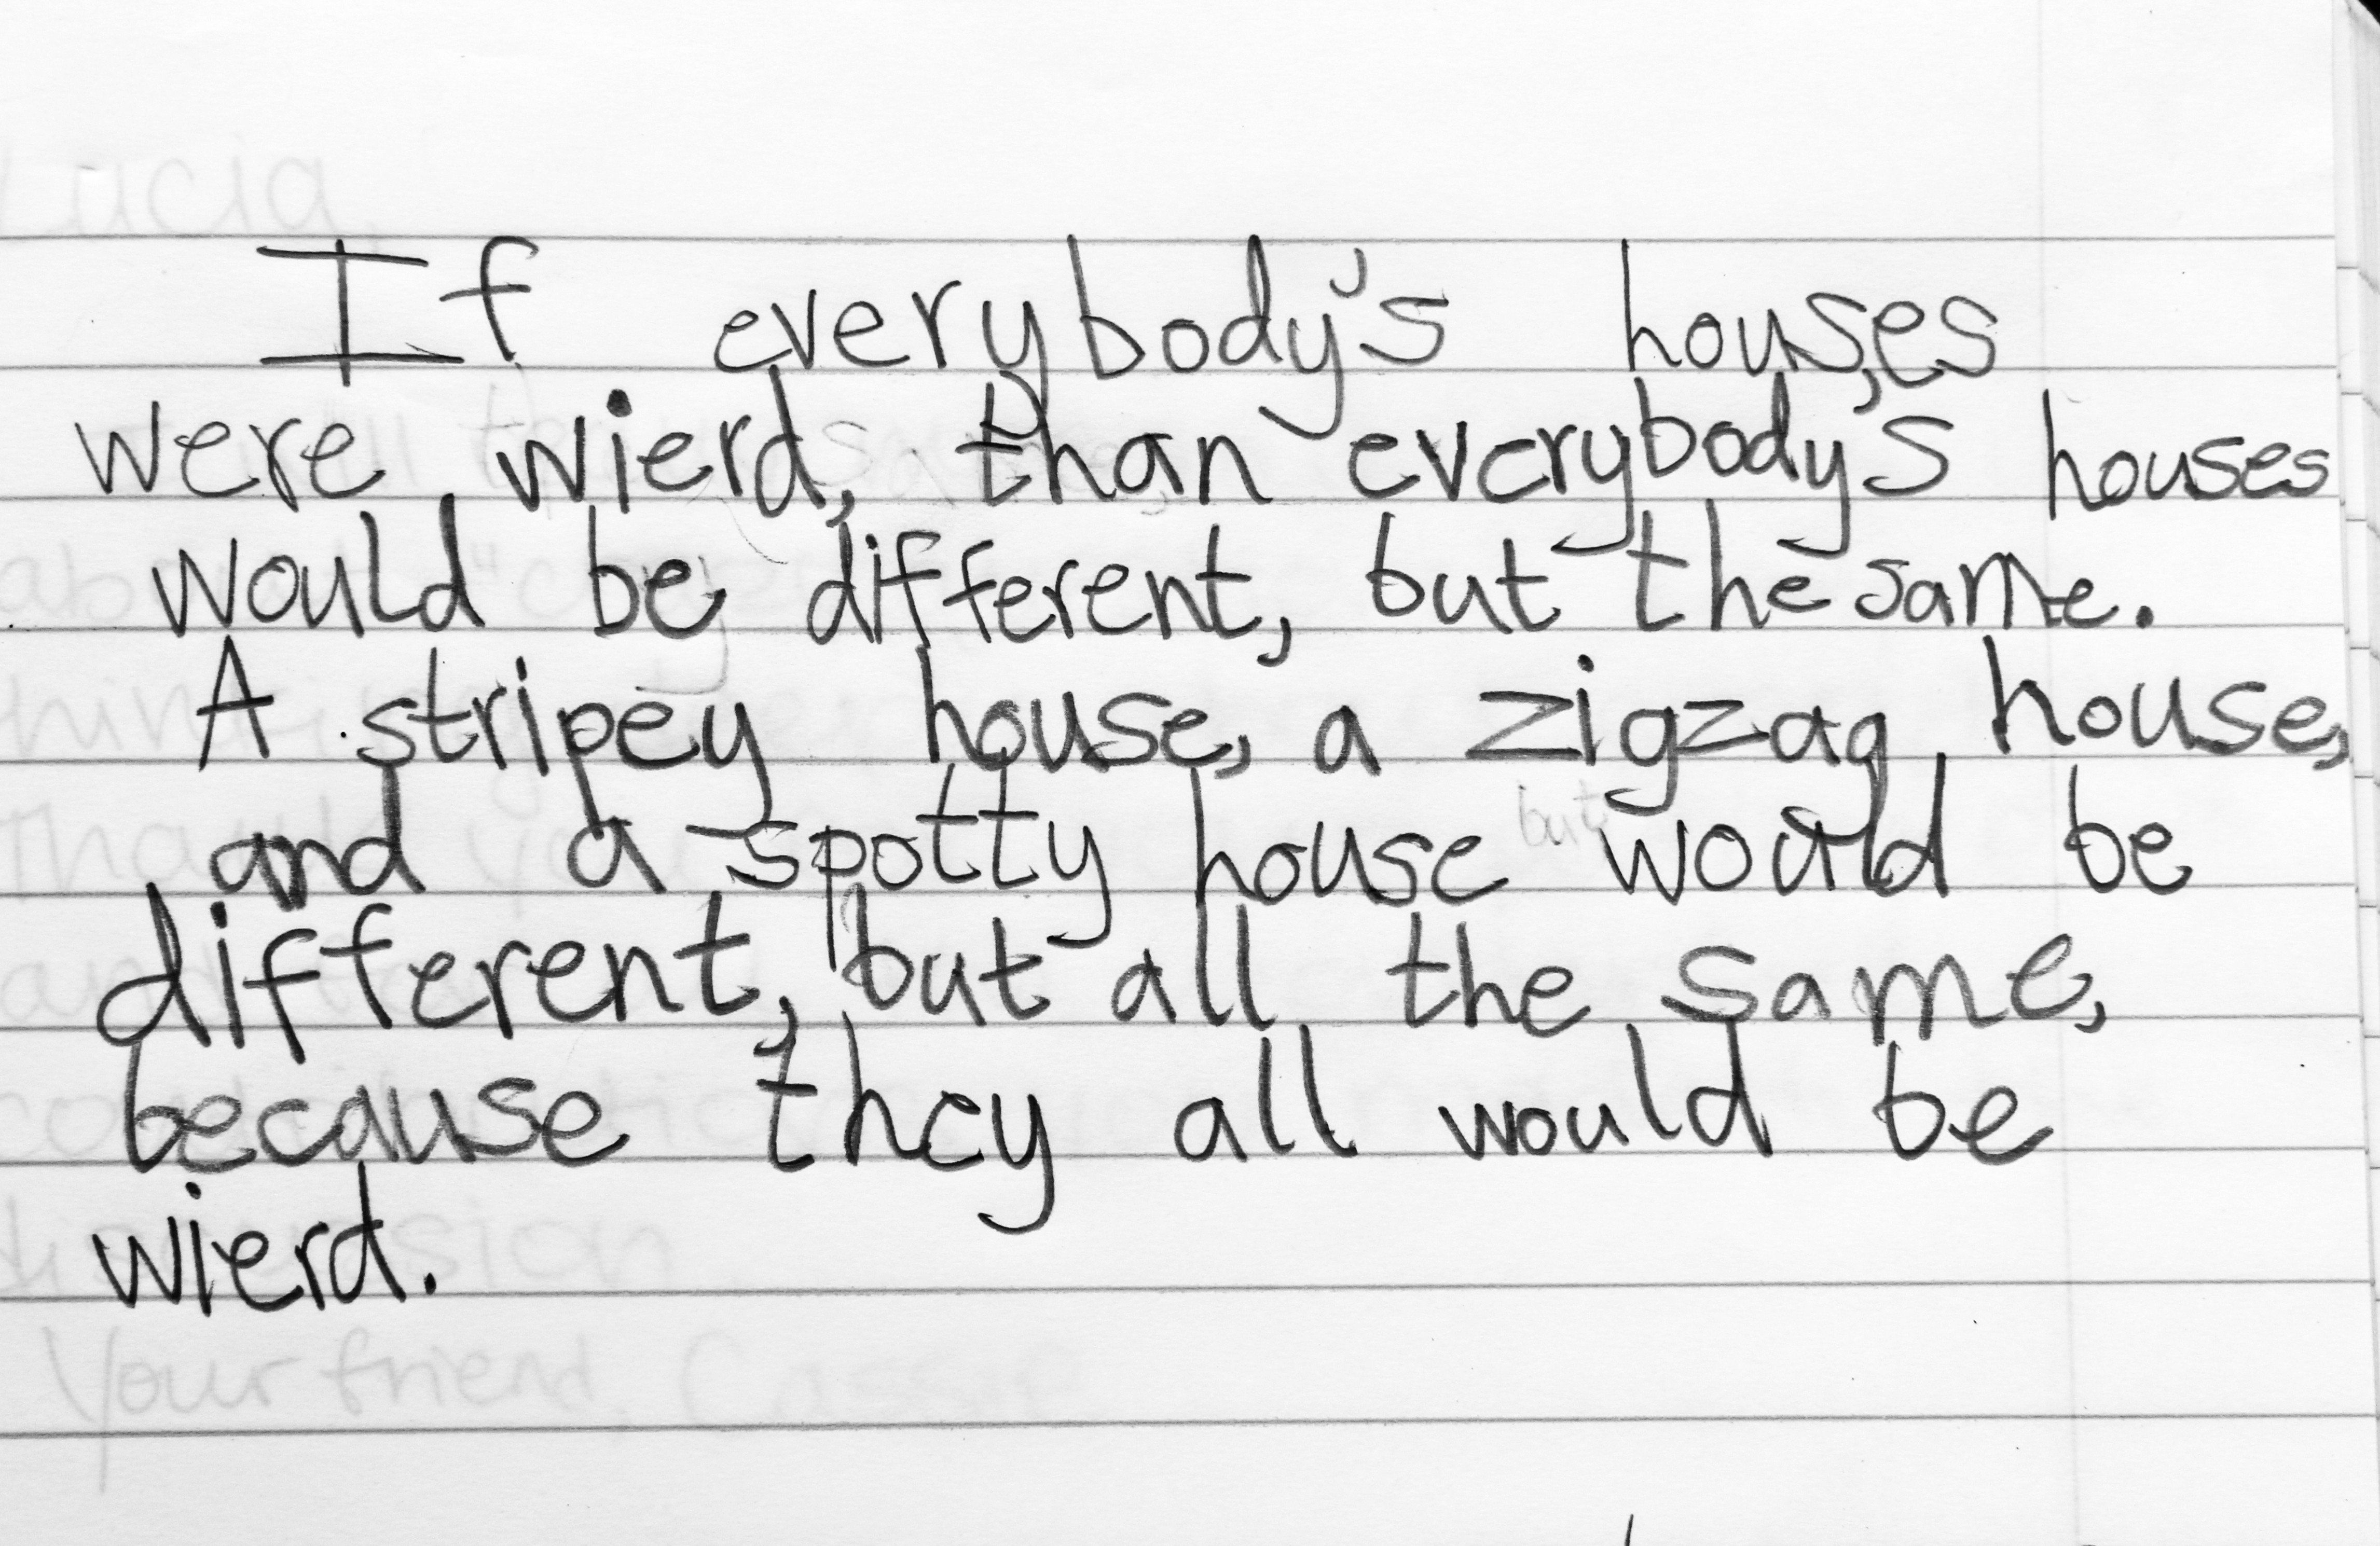 Lucia,
If everybody's houses
were wierd, than everybody's houses
would be different, but the same.
A stripey house, a zigzag house,
and a spotty house would be
different, but all the same,
because they all would be
wierd.
Your friend, Cassie